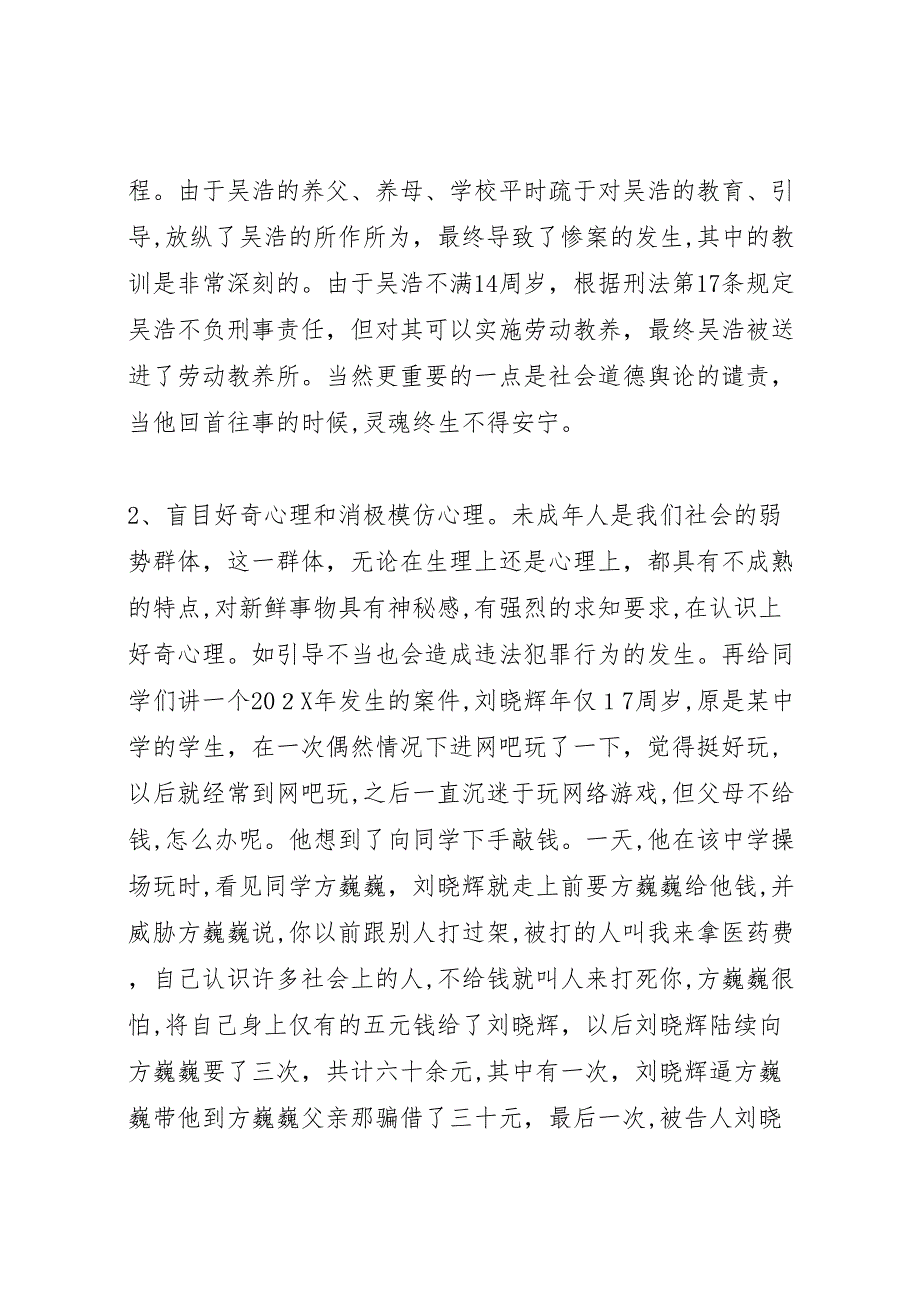 程。由于吴浩的养父、养母、学校平时疏于对吴浩的教育、引
导,放纵了吴浩的所作所为，最终导致了惨案的发生,其中的教
训是非常深刻的。由于吴浩不满14周岁，根据刑法第17条规定
吴浩不负刑事责任，但对其可以实施劳动教养，最终吴浩被送
进了劳动教养所。当然更重要的一点是社会道德舆论的谴责，
当他回首往事的时候,灵魂终生不得安宁。
2、盲目好奇心理和消极模仿心理。未成年人是我们社会的弱
势群体，这一群体，无论在生理上还是心理上，都具有不成熟
的特点,对新鲜事物具有神秘感,有强烈的求知要求,在认识上
好奇心理。如引导不当也会造成违法犯罪行为的发生。再给同
学们讲一个20２X年发生的案件,刘晓辉年仅１7周岁,原是某中
学的学生，在一次偶然情况下进网吧玩了一下，觉得挺好玩,
以后就经常到网吧玩,之后一直沉迷于玩网络游戏,但父母不给
钱,怎么办呢。他想到了向同学下手敲钱。一天,他在该中学操
场玩时,看见同学方巍巍，刘晓辉就走上前要方巍巍给他钱,并
威胁方巍巍说,你以前跟别人打过架,被打的人叫我来拿医药费
，自己认识许多社会上的人,不给钱就叫人来打死你,方巍巍很
怕,将自己身上仅有的五元钱给了刘晓辉，以后刘晓辉陆续向
方巍巍要了三次，共计六十余元,其中有一次，刘晓辉逼方巍
巍带他到方巍巍父亲那骗借了三十元，最后一次,被告人刘晓